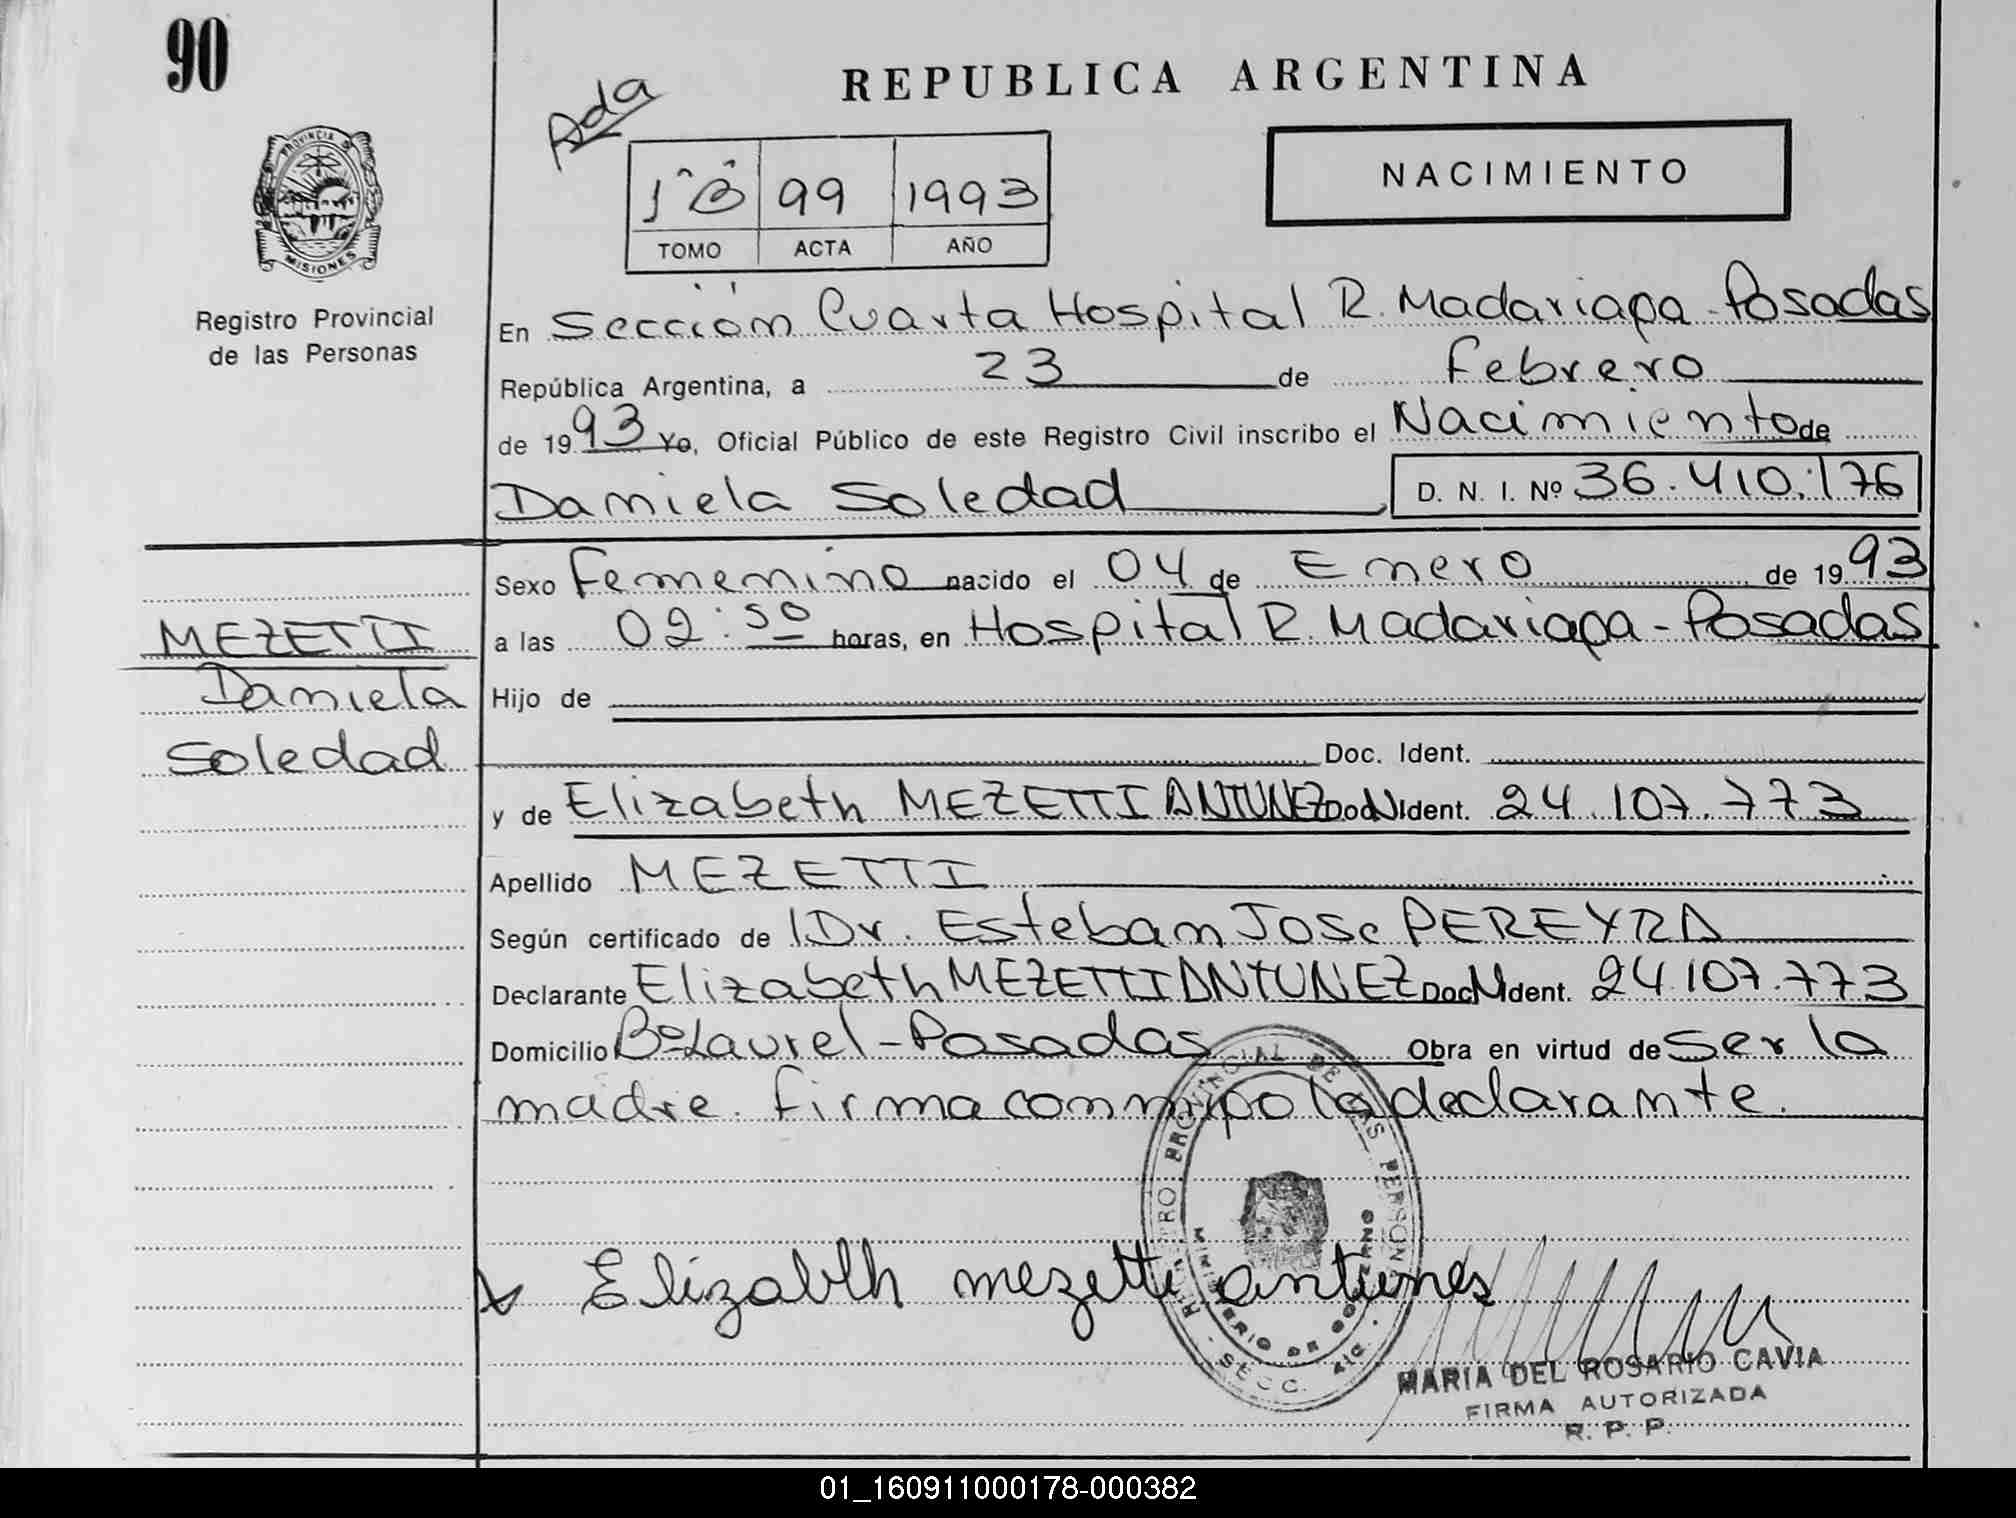 90
REPUBLICA ARGENTINA
Ada
NACIMIENTO
1º B 99 1993
TOMO ACTA AÑO
PROVINCIA DE
MISIONES
Registro Provincial
de las Personas
En Sección Cuarta Hospital R. Madariaga - Posadas
República Argentina, a 23 de Febrero
de 1993 Yo, Oficial Público de este Registro Civil inscribo el Nacimiento de
Daniela Soledad D. N. I. Nº 36.410.176
Sexo Femenino nacido el 04 de Enero de 1993
a las 02:50 horas, en Hospital R. Madariaga - Posadas
MEZETTI
Daniela
Soledad
Hijo de
Doc. Ident.
y de Elizabeth MEZETTI ANTUNEZ Doc. Ident. 24.107.773
Apellido MEZETTI
Según certificado de Dr. Esteban Jose PEREYRA
Declarante Elizabeth MEZETTI ANTUNEZ Doc. Ident. 24.107.773
Domicilio Bº Laurel - Posadas Obra en virtud de ser la
madre. firma conmigo la declarante.
REGISTRO PROVINCIAL DE LAS PERSONAS
MINISTERIO DE GOBIERNO
SECC. 4ta.
Elizabth mezetti antunes
MARIA DEL ROSARIO CAVIA
FIRMA AUTORIZADA
R. P. P.
01_160911000178-000382